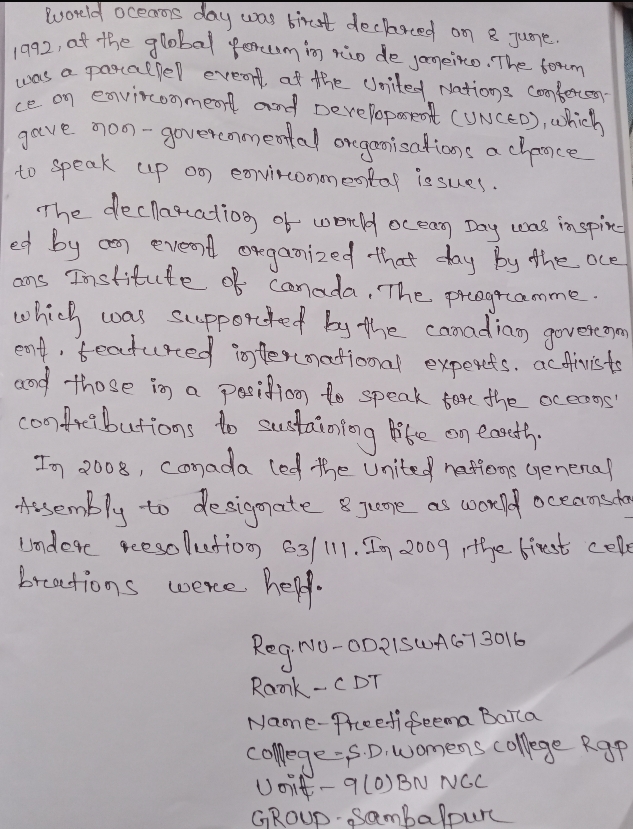 World oceans day was first declared on 8 june.
1992, at the global forum in rio de janeiro. The forum
was a parallel event at the United Nations conferen-
ce on environment and Development (UNCED), which
gave non-governmental organisations a chance
to speak up on environmental issues.
The decllaration of world ocean Day was inspir-
ed by an event organized that day by the oce
ans Institute of Canada. The programme.
which was supported by the canadian governm
ent, featured international experts. activists
and those in a position to speak for the oceans'
contributions to sustaining life on earth.
In 2008, canada led the United nations general
Assembly to designate 8 june as world oceansda
Under resolution 63/111. In 2009, the first cele
brations were held.
Reg. NO - OD21SWAG73016
Rank - CDT
Name - Preeti Seema Bara
College - S.D. Womens college Rgp
Unit - 9(O) BN NCC
GROUP - Sambalpur